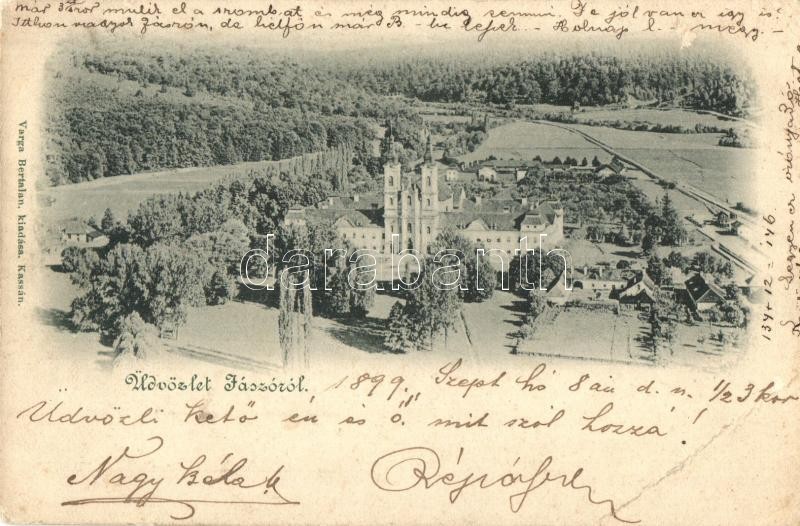 már 3szor mulik el a szombat és még mindig semmi. De jól van ez így is!
Itthon vagyok Jászón, de hétfőn már B - be lejek. - Holnap l. - megy. -
Varga Bertalan, kiadása, Kassán.
134 + 12 = 146
darabanth.com
Üdvözlet Jászóról. 1899. Szept hó 8 án d. n. 1/2 3 kor
Üdvözli kető én és Ő! mit szól hozzá!
Nagy Béla